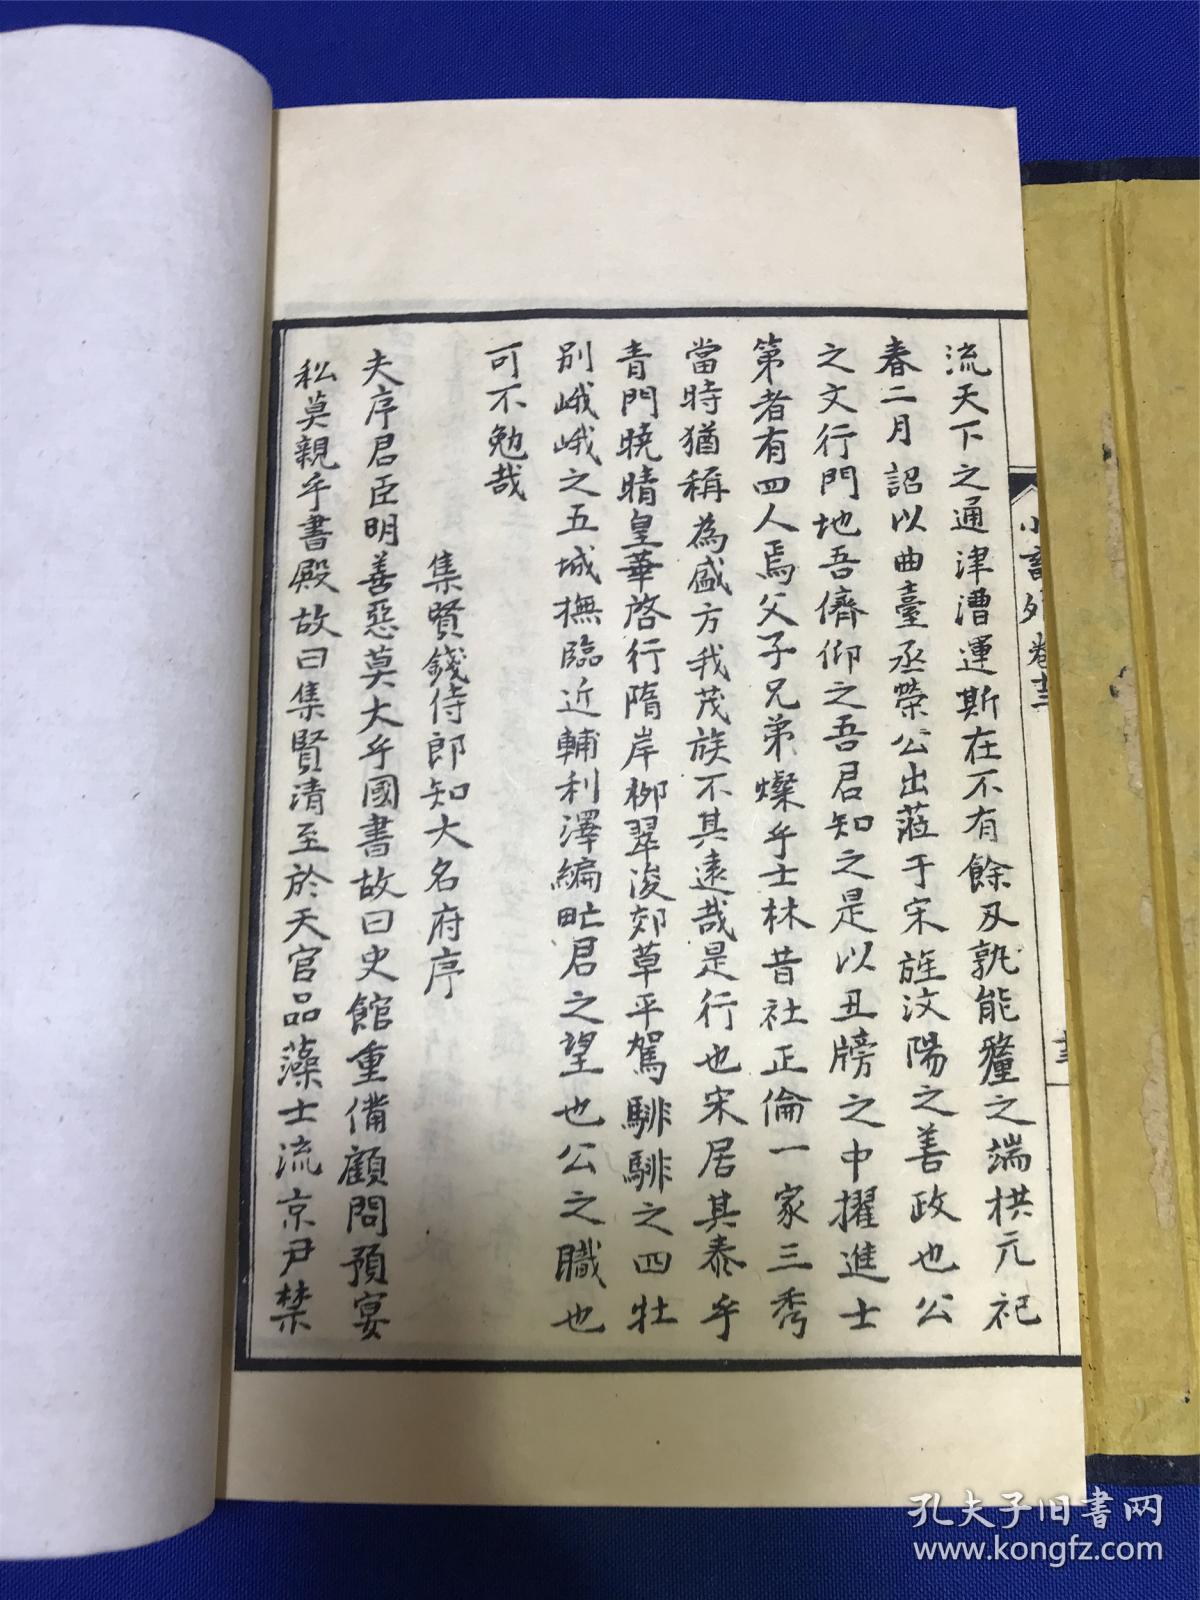 流天下之通津漕運斯在不有餘刄孰能釐之端拱元祀
春二月詔以曲臺丞榮公出蒞于宋旌汶陽之善政也公
之文行門地吾儕仰之吾君知之是以丑牓之中擢進士
第者有四人焉父子兄弟燦乎士林昔社正倫一家三秀
當時猶稱為盛方我茂族不其遠哉是行也宋居其泰乎
青門曉晴皇華啓行隋岸柳翠浚郊草平駕騑騑之四牡
別峨峨之五城撫臨近輔利澤編甿君之望也公之職也
可不勉哉
集賢錢侍郎知大名府序
夫序君臣明善惡莫大乎國書故曰史館重備顧問預宴
私莫親乎書殿故曰集賢清至於天官品藻士流京尹禁
小畜外卷十三
孔夫子旧书网
www.kongfz.com